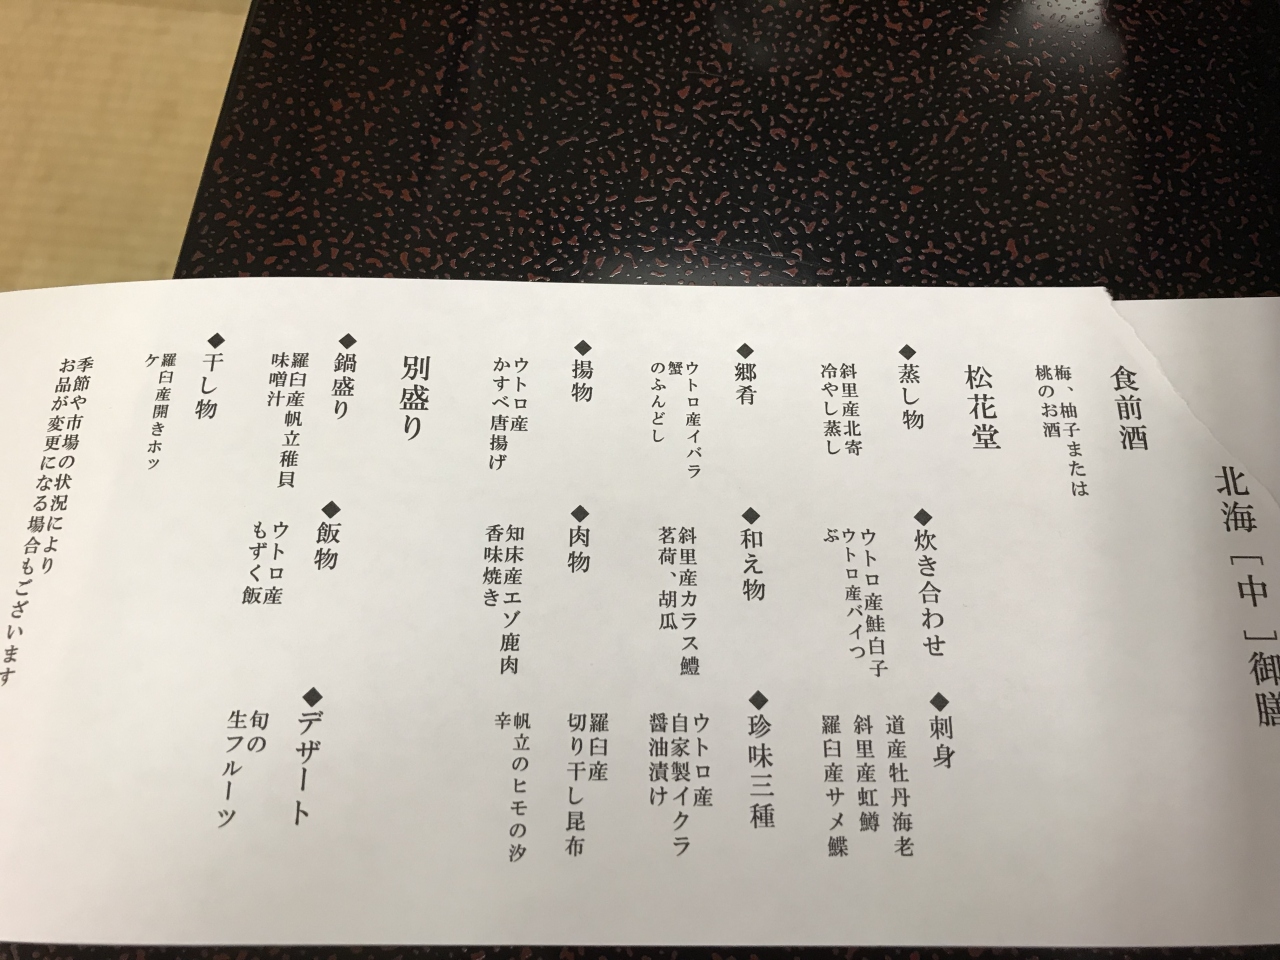 北海[中]御膳
食前酒
梅、柚子または
桃のお酒
松花堂
◆蒸し物
斜里産北寄
冷やし蒸し
◆炊き合わせ
ウトロ産鮭白子
ウトロ産バイつ
ぶ
◆刺身
道産牡丹海老
斜里産虹鱒
羅臼産サメ鰈
◆郷肴
ウトロ産イバラ
蟹
のふんどし
◆和え物
斜里産カラス鱧
茗荷、胡瓜
◆珍味三種
ウトロ産
自家製イクラ
醤油漬け
羅臼産
切り干し昆布
帆立のヒモの汐
辛
◆揚物
ウトロ産
かすべ唐揚げ
◆肉物
知床産エゾ鹿肉
香味焼き
別盛り
◆鍋盛り
羅臼産帆立稚貝
味噌汁
◆飯物
ウトロ産
もずく飯
◆デザート
旬の
生フルーツ
◆干し物
羅臼産開きホッ
ケ
季節や市場の状況により
お品が変更になる場合もございます